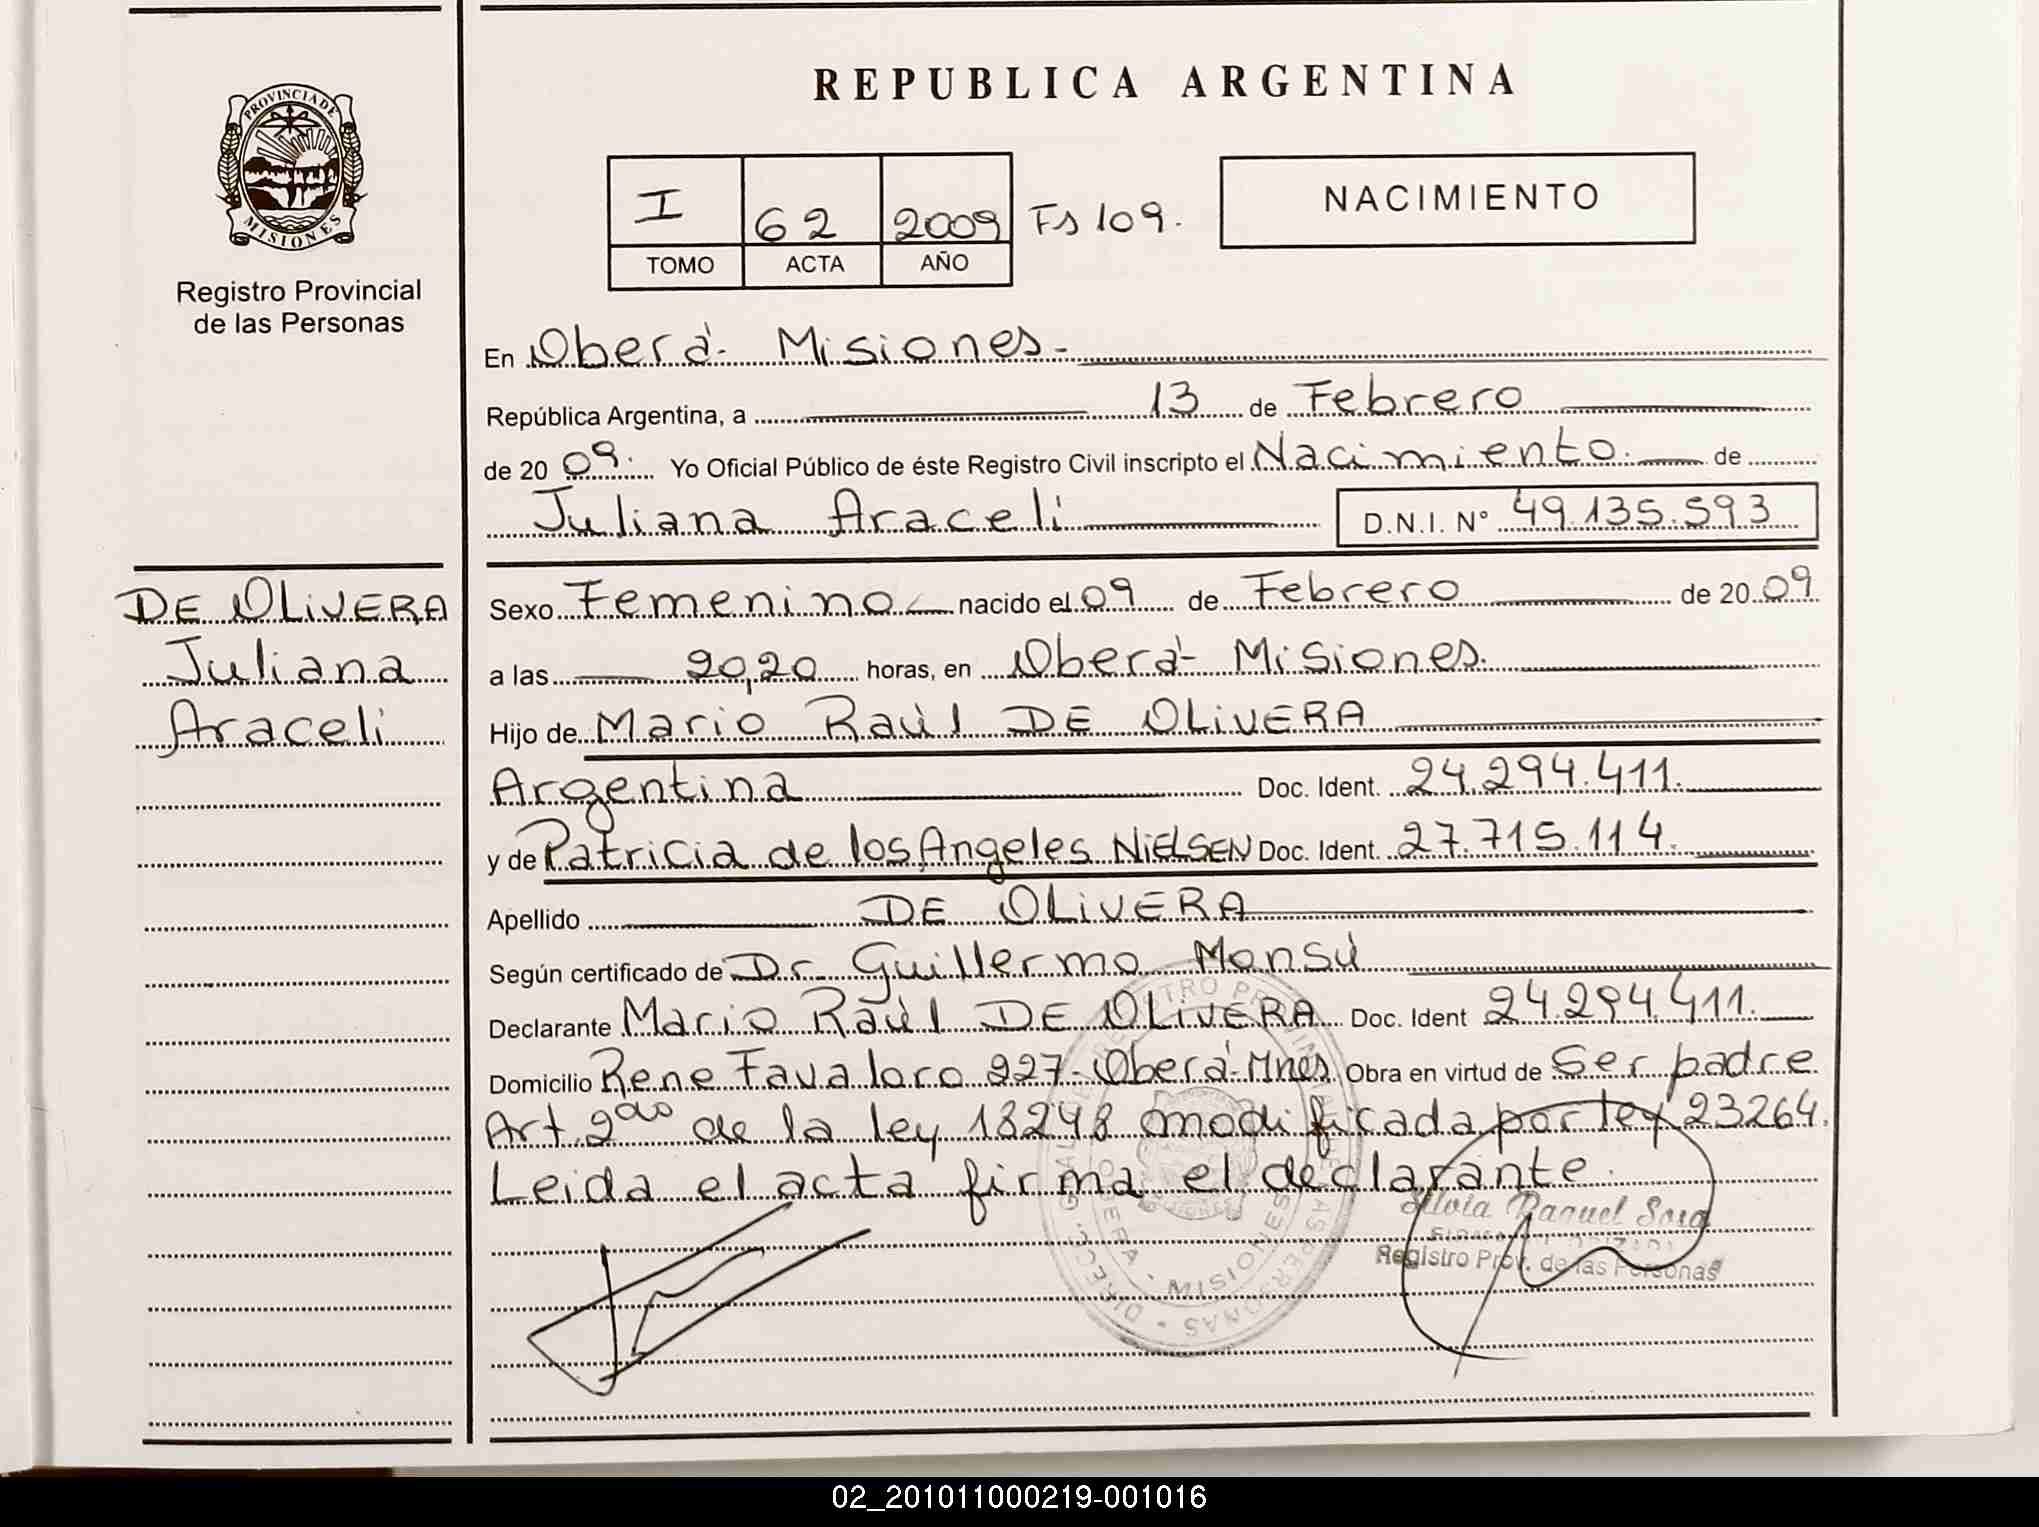 REPUBLICA ARGENTINA
PROVINCIA DE
MISIONES
Registro Provincial
de las Personas
I 62 2009 Fs 109.
TOMO ACTA AÑO
NACIMIENTO
En Oberá- Misiones-
República Argentina, a 13 de Febrero
de 20 09. Yo Oficial Público de éste Registro Civil inscripto el Nacimiento. de
Juliana Araceli D.N.I. N° 49.135.593
DE OLiVERA
Juliana
Araceli
Sexo Femenino nacido el 09 de Febrero de 20 09
a las 20,20 horas, en Oberá- Misiones.
Hijo de Mario Raúl DE OLiVERA
Argentina Doc. Ident. 24.294.411.
y de Patricia de los Angeles NiELSEN Doc. Ident. 27.715.114.
Apellido DE OLiVERA
Según certificado de Dr. Guillermo Monsú
Declarante Mario Raúl DE OLiVERA Doc. Ident 24.294.411.
Domicilio Rene Favaloro 227- Oberá-Mnes Obra en virtud de Ser padre
Art 2do de la ley 18248 modificada por ley 23264.
Leida el acta firma el declarante.
Silvia Raquel Sosa
Registro Prov. de las Personas
OBERA - MISIONES
02_201011000219-001016